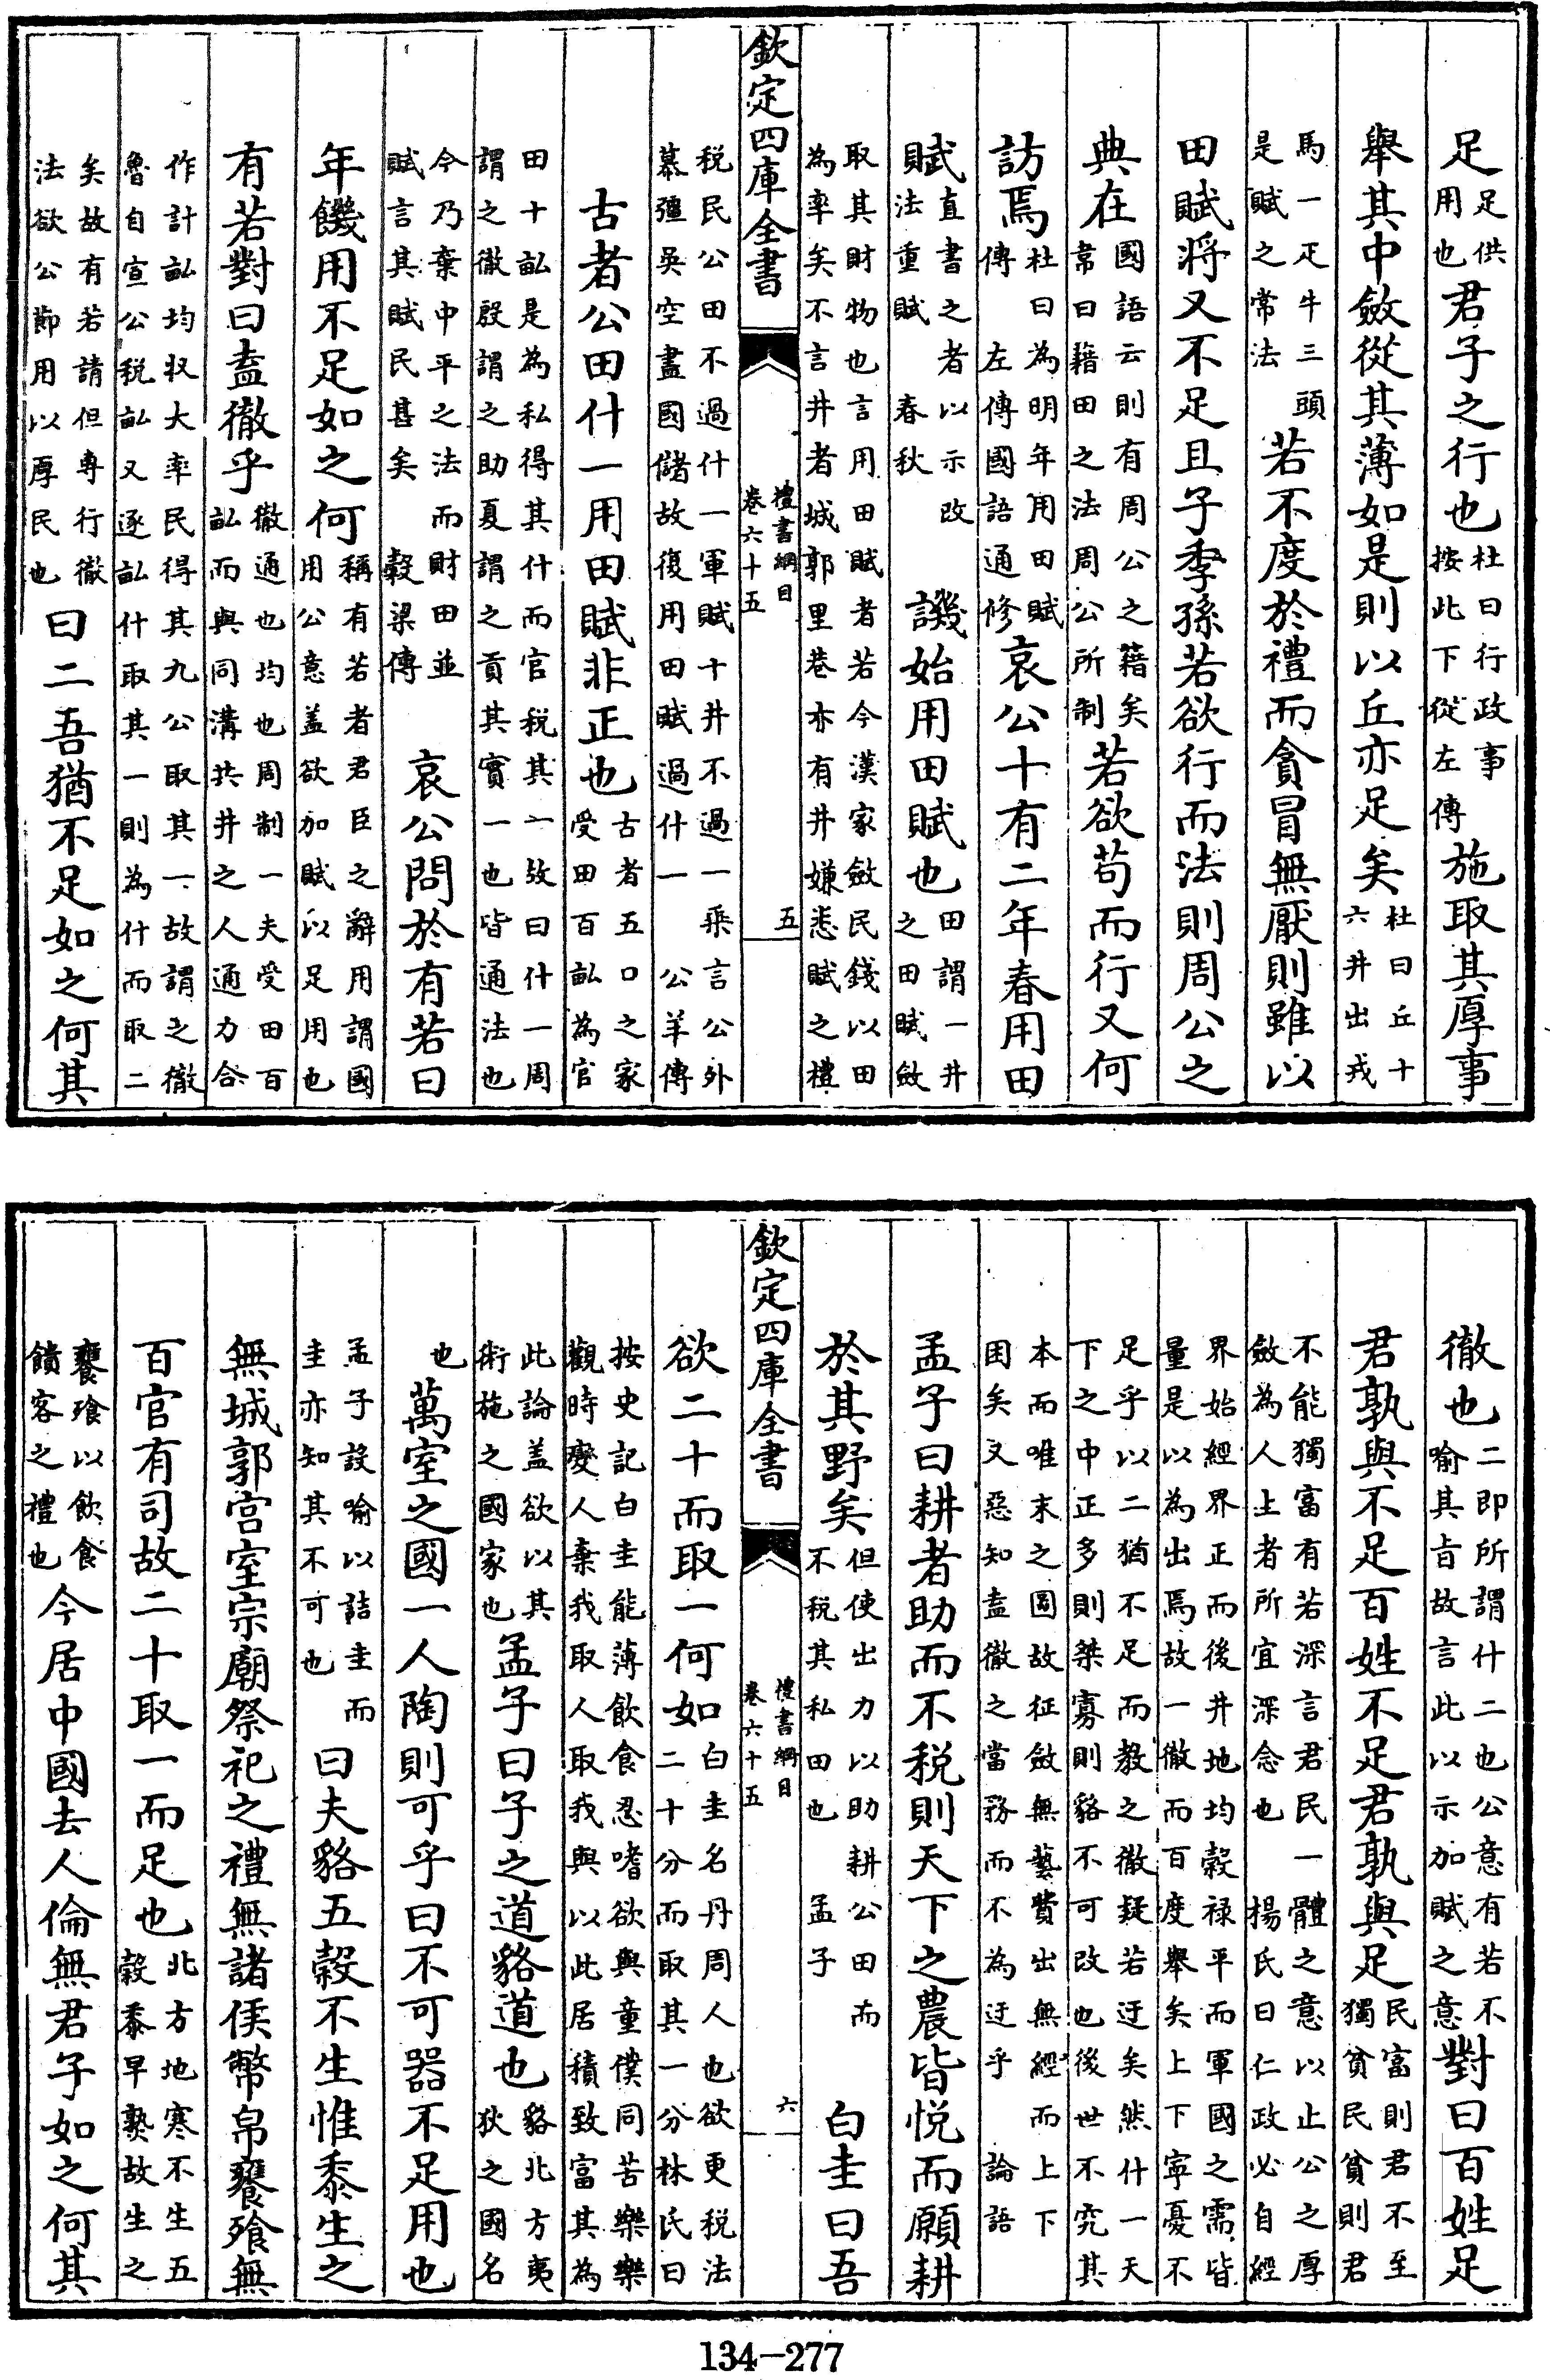 足足供用也君子之行也杜曰行政事按此下從左傳施取其厚事
舉其中斂從其薄如是則以丘亦足矣杜曰丘十六井出戎
馬一疋牛三頭是賦之常法若不度於禮而貪冒無厭則雖以
田賦将又不足且子季孫若欲行而法則周公之
典在國語云則有周公之籍矣韋曰籍田之法周公所制若欲苟而行又何
訪焉杜曰為明年用田賦傳 左傳國語通修哀公十有二年春用田
賦直書之者以示改法重賦 春秋 譏始用田賦也田謂一井之田賦斂
取其財物也言用田賦者若今漢家斂民錢以田
為率矣不言井者城郭里巷亦有井嫌悉賦之禮
欽定四庫全書 禮書綱目 卷六十五 五
税民公田不過什一軍賦十井不過一乗言公外
慕彊吳空盡國儲故復用田賦過什一 公羊傳
古者公田什一用田賦非正也古者五口之家受田百畝為官
田十畝是為私得其什而官税其一故曰什一周
謂之徹殷謂之助夏謂之貢其實一也皆通法也
今乃棄中平之法而財田並賦言其賦民甚矣 穀梁傳 哀公問於有若曰
年饑用不足如之何稱有若者君臣之辭用謂國用公意盖欲加賦以足用也
有若對曰盍徹乎徹通也均也周制一夫受田百畝而與同溝共井之人通力合
作計畝均収大率民得其九公取其一故謂之徹
魯自宣公税畝又逐畝什取其一則為什而取二
矣故有若請但專行徹法欲公節用以厚民也曰二吾猶不足如之何其
徹也二即所謂什二也公意有若不喻其旨故言此以示加賦之意對曰百姓足
君孰與不足百姓不足君孰與足民富則君不至獨貧民貧則君
不能獨富有若深言君民一體之意以止公之厚
斂為人上者所宜深念也 楊氏曰仁政必自經
界始經界正而後井地均穀禄平而軍國之需皆
量是以為出焉故一徹而百度舉矣上下寧憂不
足乎以二猶不足而教之徹疑若迂矣然什一天
下之中正多則桀寡則貉不可改也後世不究其
本而唯末之圖故征斂無藝費出無經而上下
困矣又惡知盍徹之當務而不為迂乎 論語
孟子曰耕者助而不税則天下之農皆悦而願耕
於其野矣但使出力以助耕公田而不税其私田也 孟子 白圭曰吾
欽定四庫全書 禮書綱目 卷六十五 六
欲二十而取一何如白圭名丹周人也欲更税法二十分而取其一分林氏曰
按史記白圭能薄飲食忍嗜欲與童僕同苦樂樂
觀時變人棄我取人取我與以此居積致富其為
此論盖欲以其術施之國家也孟子曰子之道貉道也貉北方夷狄之國名
也萬室之國一人陶則可乎曰不可器不足用也
孟子設喻以詰圭而圭亦知其不可也曰夫貉五穀不生惟黍生之
無城郭宫室宗廟祭祀之禮無諸侯幣帛饔飱無
百官有司故二十取一而足也北方地寒不生五穀黍早熟故生之
饔飱以飲食饋客之禮也今居中國去人倫無君子如之何其
134-277